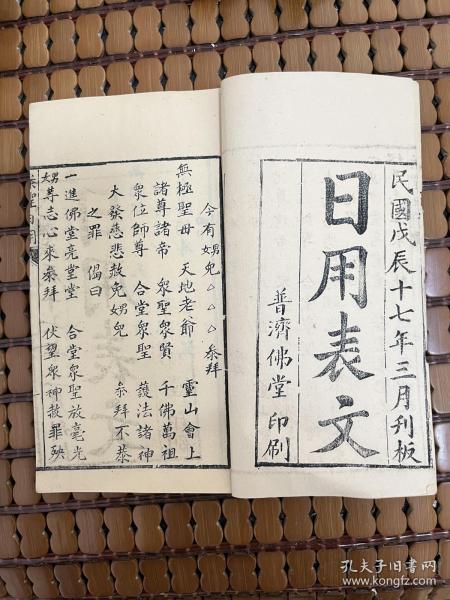 民國戊辰十七年三月刋板
日用表文
普濟佛堂印刷
今有娚兒△△△叅拜
無極聖母 天地老爺 靈山會上
諸尊諸帝 衆聖衆賢 千佛萬祖
衆位師尊 合堂衆聖 護法諸神
大發慈悲赦免娚兒 叅拜不恭
之罪 偈曰
一進佛堂亮堂堂 合堂衆聖放毫光
尊志心來叅拜 伏望衆神赦罪殃
孔夫子旧书网
www.kongfz.com